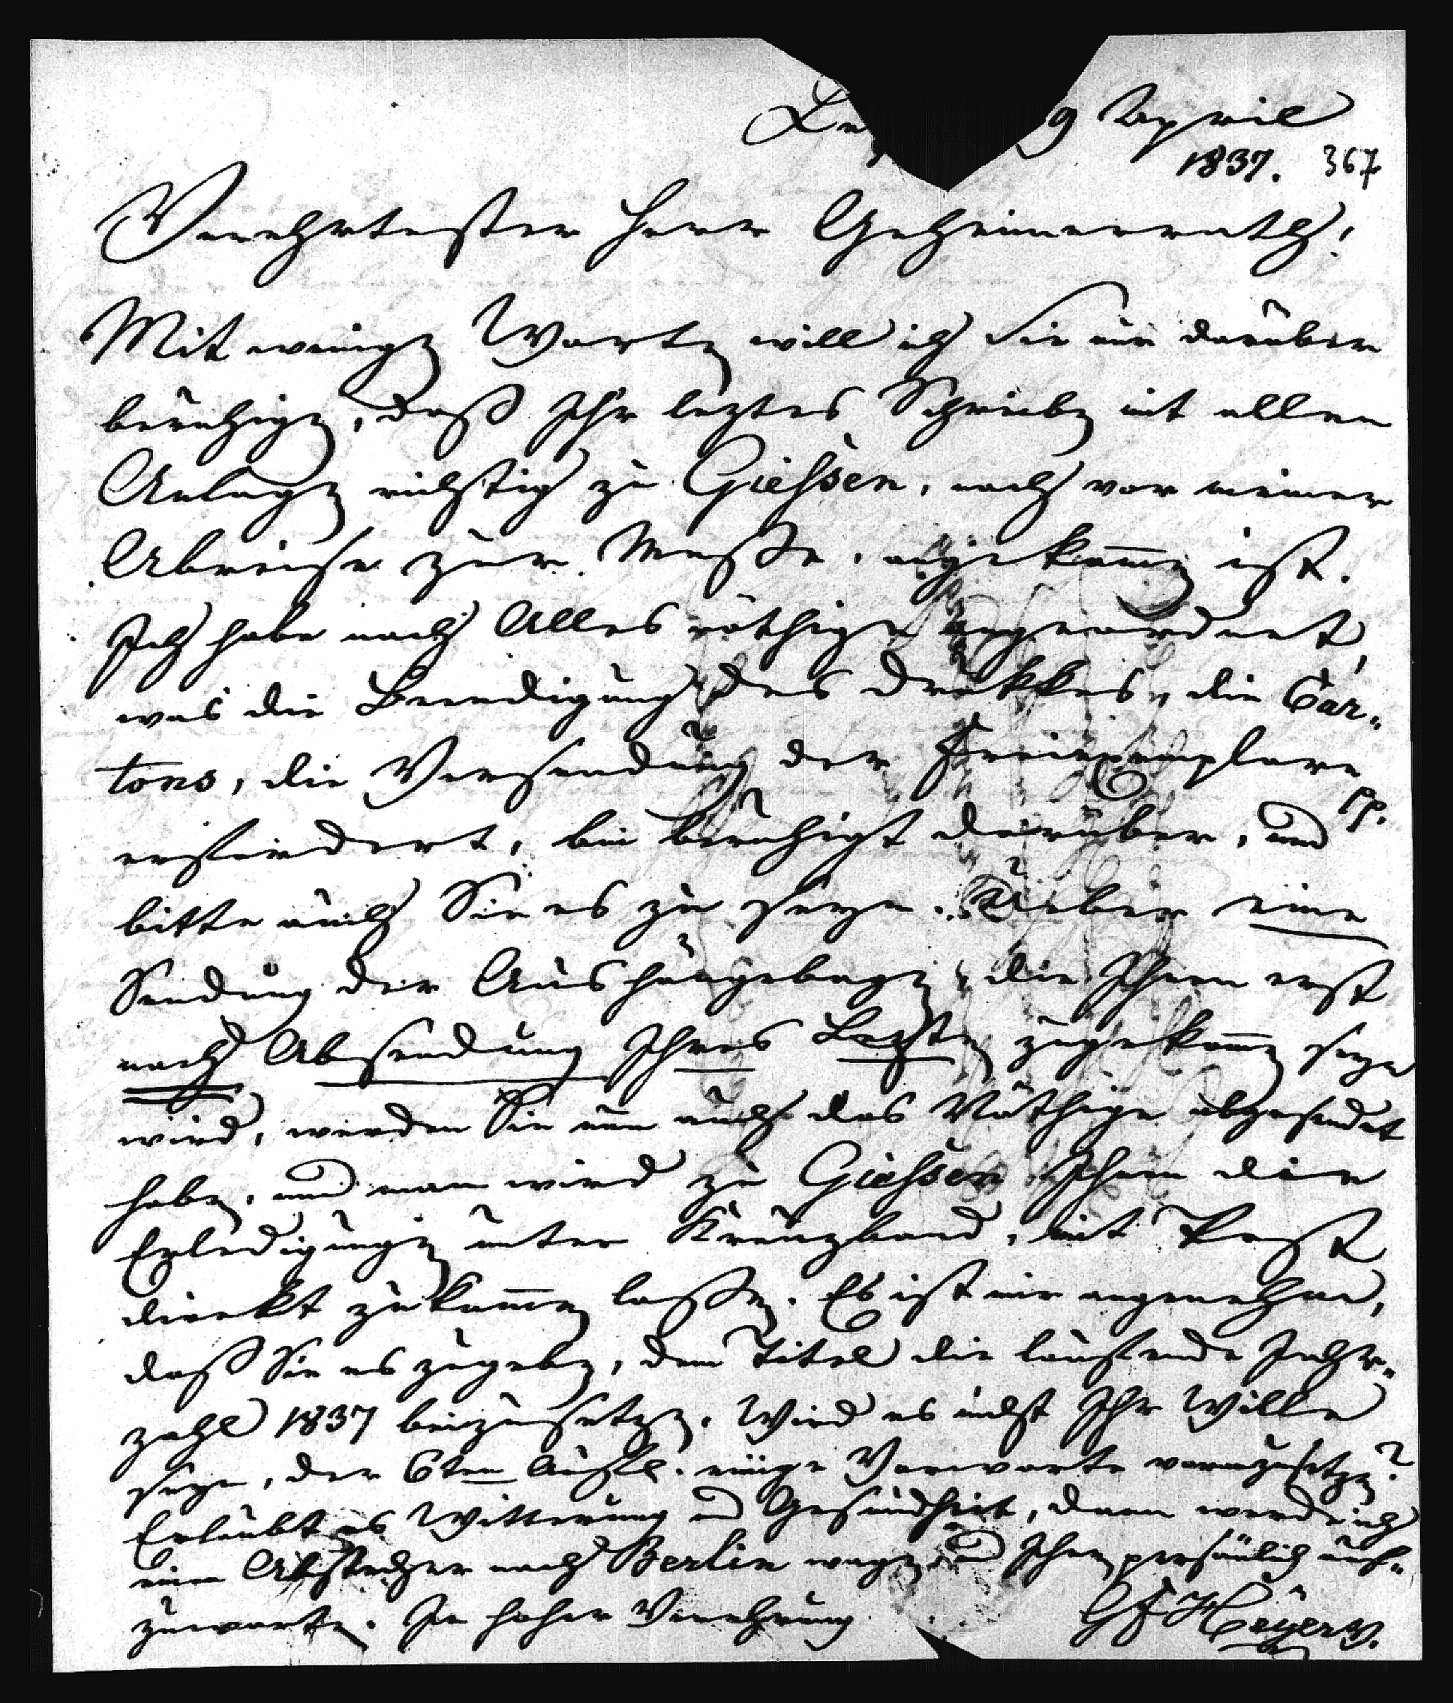 Le 9 April
1837. 367
Verehrtester Herr Geheimerrath!
Mit wenigen Worten will ich Sie nur darüber
beruhigen, daß Ihr leztes Schreiben mit allen
Anlagen richtig zu Giessen, noch vor meiner
Abreise zur Messe, angekommen ist.
Ich habe noch Alles nöthige angeordnet,
was die Beendigung des Drukkes, die Car-
tons, die Versendung der Freiexemplare pp.
erfordert, bin beruhigt darüber, und
bitte auch Sie es zu seyn. Ueber eine
Sendung der Aushängebogen, die Ihnen erst
nach Absendung Ihres Lezten zugekommen seyn
wird, werden Sie nun auch das Nöthige abgesendet
haben, und man wird zu Giessen Ihnen die
Erledigungen unter Kreuzband, mit Post
direkt zukommen lassen. Es ist mir angenehm,
daß Sie es zugeben, dem Titel die laufende Jahr-
zahl 1837 beizusetzen. Wird es nicht Ihr Wille
seyn, der 6ten Aufl. einige Vorworte voranzusetzen?
Erlaubt es Witterung und Gesundheit, dann werde ich
einen Abstecher nach Berlin wagen und Ihnen persönlich auf-
zuwarten. In hoher Verehrung
GF Heyer V.